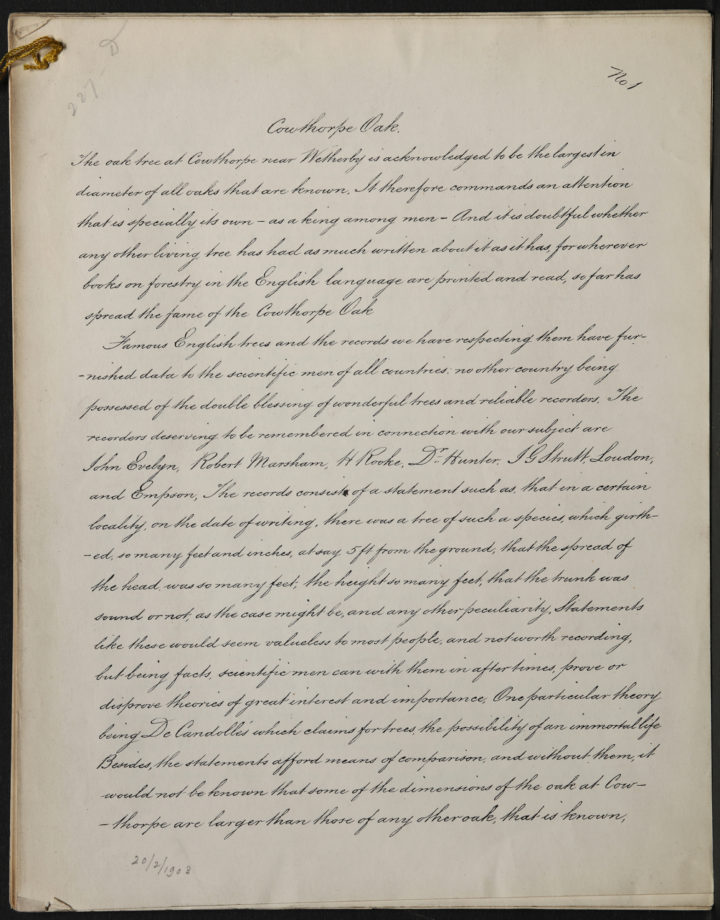 227-D
No 1
Cowthorpe Oak.
The oak tree at Cowthorpe near Wetherby is acknowledged to be the largest in
diameter of all oaks that are known. It therefore commands an attention
that is specially its own – as a king among men – And it is doubtful whether
any other living tree has had as much written about it as it has, for wherever
books on forestry in the English language are printed and read, so far has
spread the fame of the Cowthorpe Oak
Famous English trees and the records we have respecting them have fur-
-nished data to the scientific men of all countries; no other country being
possessed of the double blessing of wonderful trees and reliable recorders. The
recorders deserving to be remembered in connection with our subject are
John Evelyn, Robert Marsham, H Rooke, Dr Hunter, J G Strutt, Loudon,
and Empson. The records consist of a statement such as, that in a certain
locality, on the date of writing, there was a tree of such a species, which girth-
-ed, so many feet and inches, at say 5 ft from the ground, that the spread of
the head, was so many feet, the height so many feet, that the trunk was
sound or not, as the case might be, and any other peculiarity. Statements
like these would seem valueless to most people, and not worth recording,
but being facts, scientific men can with them in after times, prove or
disprove theories of great interest and importance. One particular theory
being De Candolle's which claims for trees, the possibility of an immortal life
Besides, the statements afford means of comparison, and without them, it
would not be known that some of the dimensions of the oak at Cow-
-thorpe are larger than those of any other oak, that is known,
20/2/1908